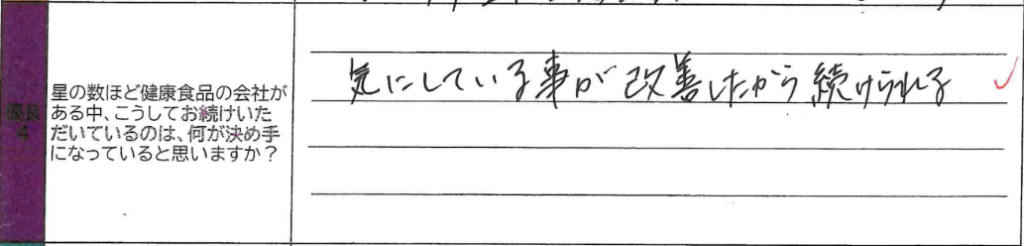 優良
4
星の数ほど健康食品の会社が
ある中、こうしてお続けいた
だいているのは、何が決め手
になっていると思いますか？
気にしている事が改善したから続けられる